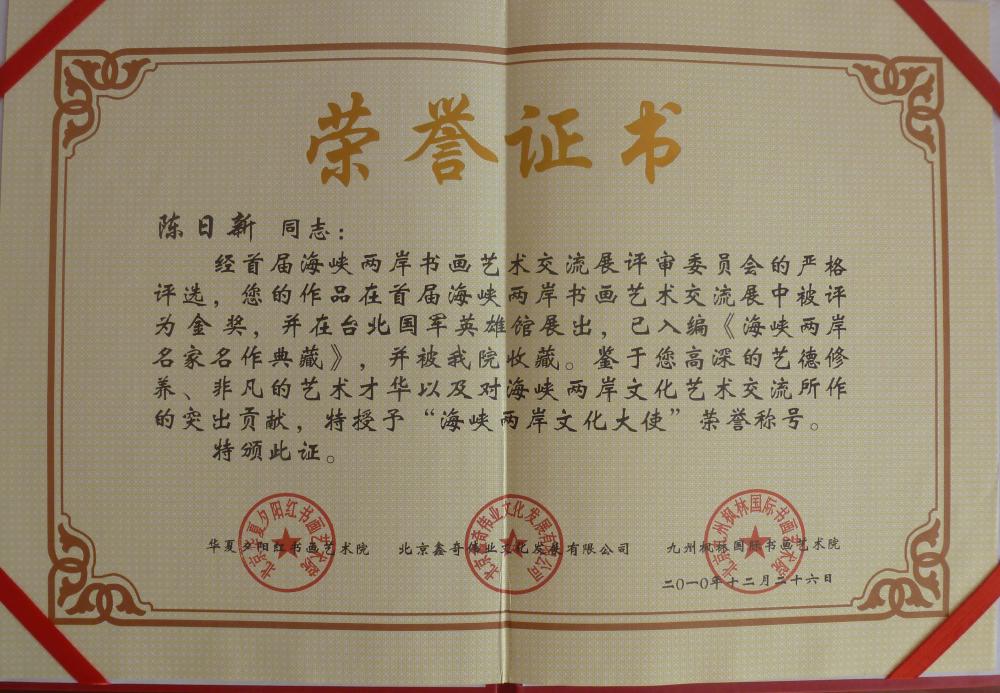 荣誉证书
陈日新 同志：
经首届海峡两岸书画艺术交流展评审委员会的严格
评选，您的作品在首届海峡两岸书画艺术交流展中被评
为金奖，并在台北国军英雄馆展出，已入编《海峡两岸
名家名作典藏》，并被我院收藏。鉴于您高深的艺德修
养、非凡的艺术才华以及对海峡两岸文化艺术交流所作
的突出贡献，特授予“海峡两岸文化大使”荣誉称号。
特颁此证。
北京华夏夕阳红书画艺术院
北京鑫奇伟业文化发展有限公司
北京九州枫林国际书画艺术院
华夏夕阳红书画艺术院 北京鑫奇伟业文化发展有限公司 九州枫林国际书画艺术院
二〇一〇年十二月二十六日